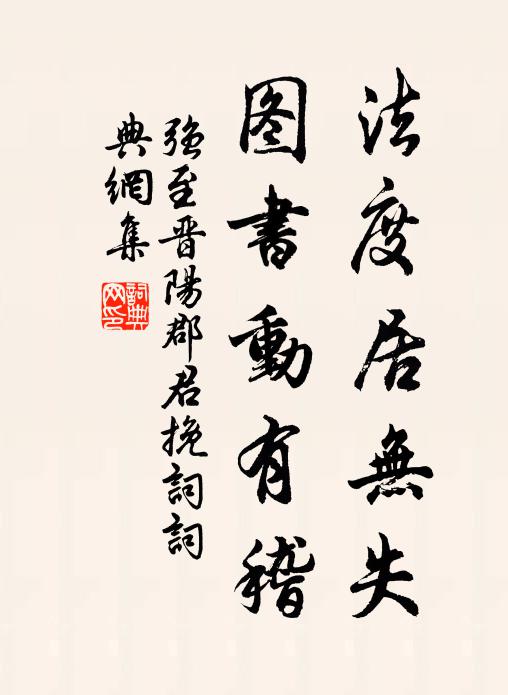 法度居無失
图書動有稽
強至晋陽郡君挽詞詞
典網集
詞典
网印